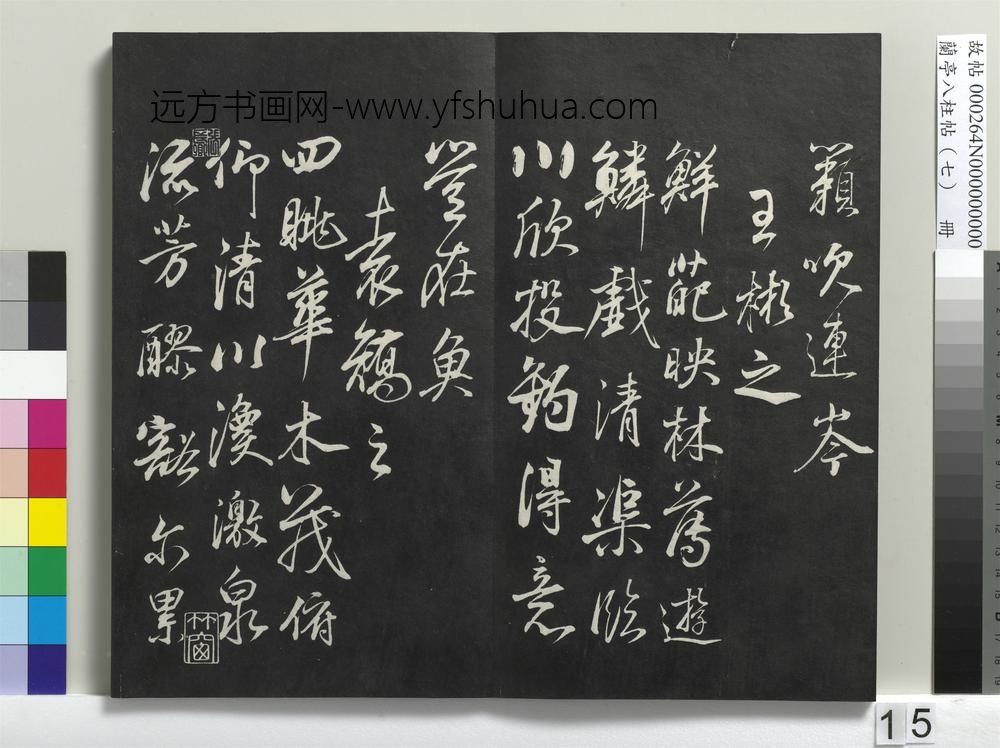 远方书画网-www.yfshuhua.com
籟吹連岑
王彬之
鮮葩映林薄遊
鱗戲清渠臨
川欣投釣得意
豈在魚
袁之
四眺華木茂俯
仰清川渙激泉
流芳醪豁尔累
故帖 000264N000000000
蘭亭八柱帖(七) 冊
15